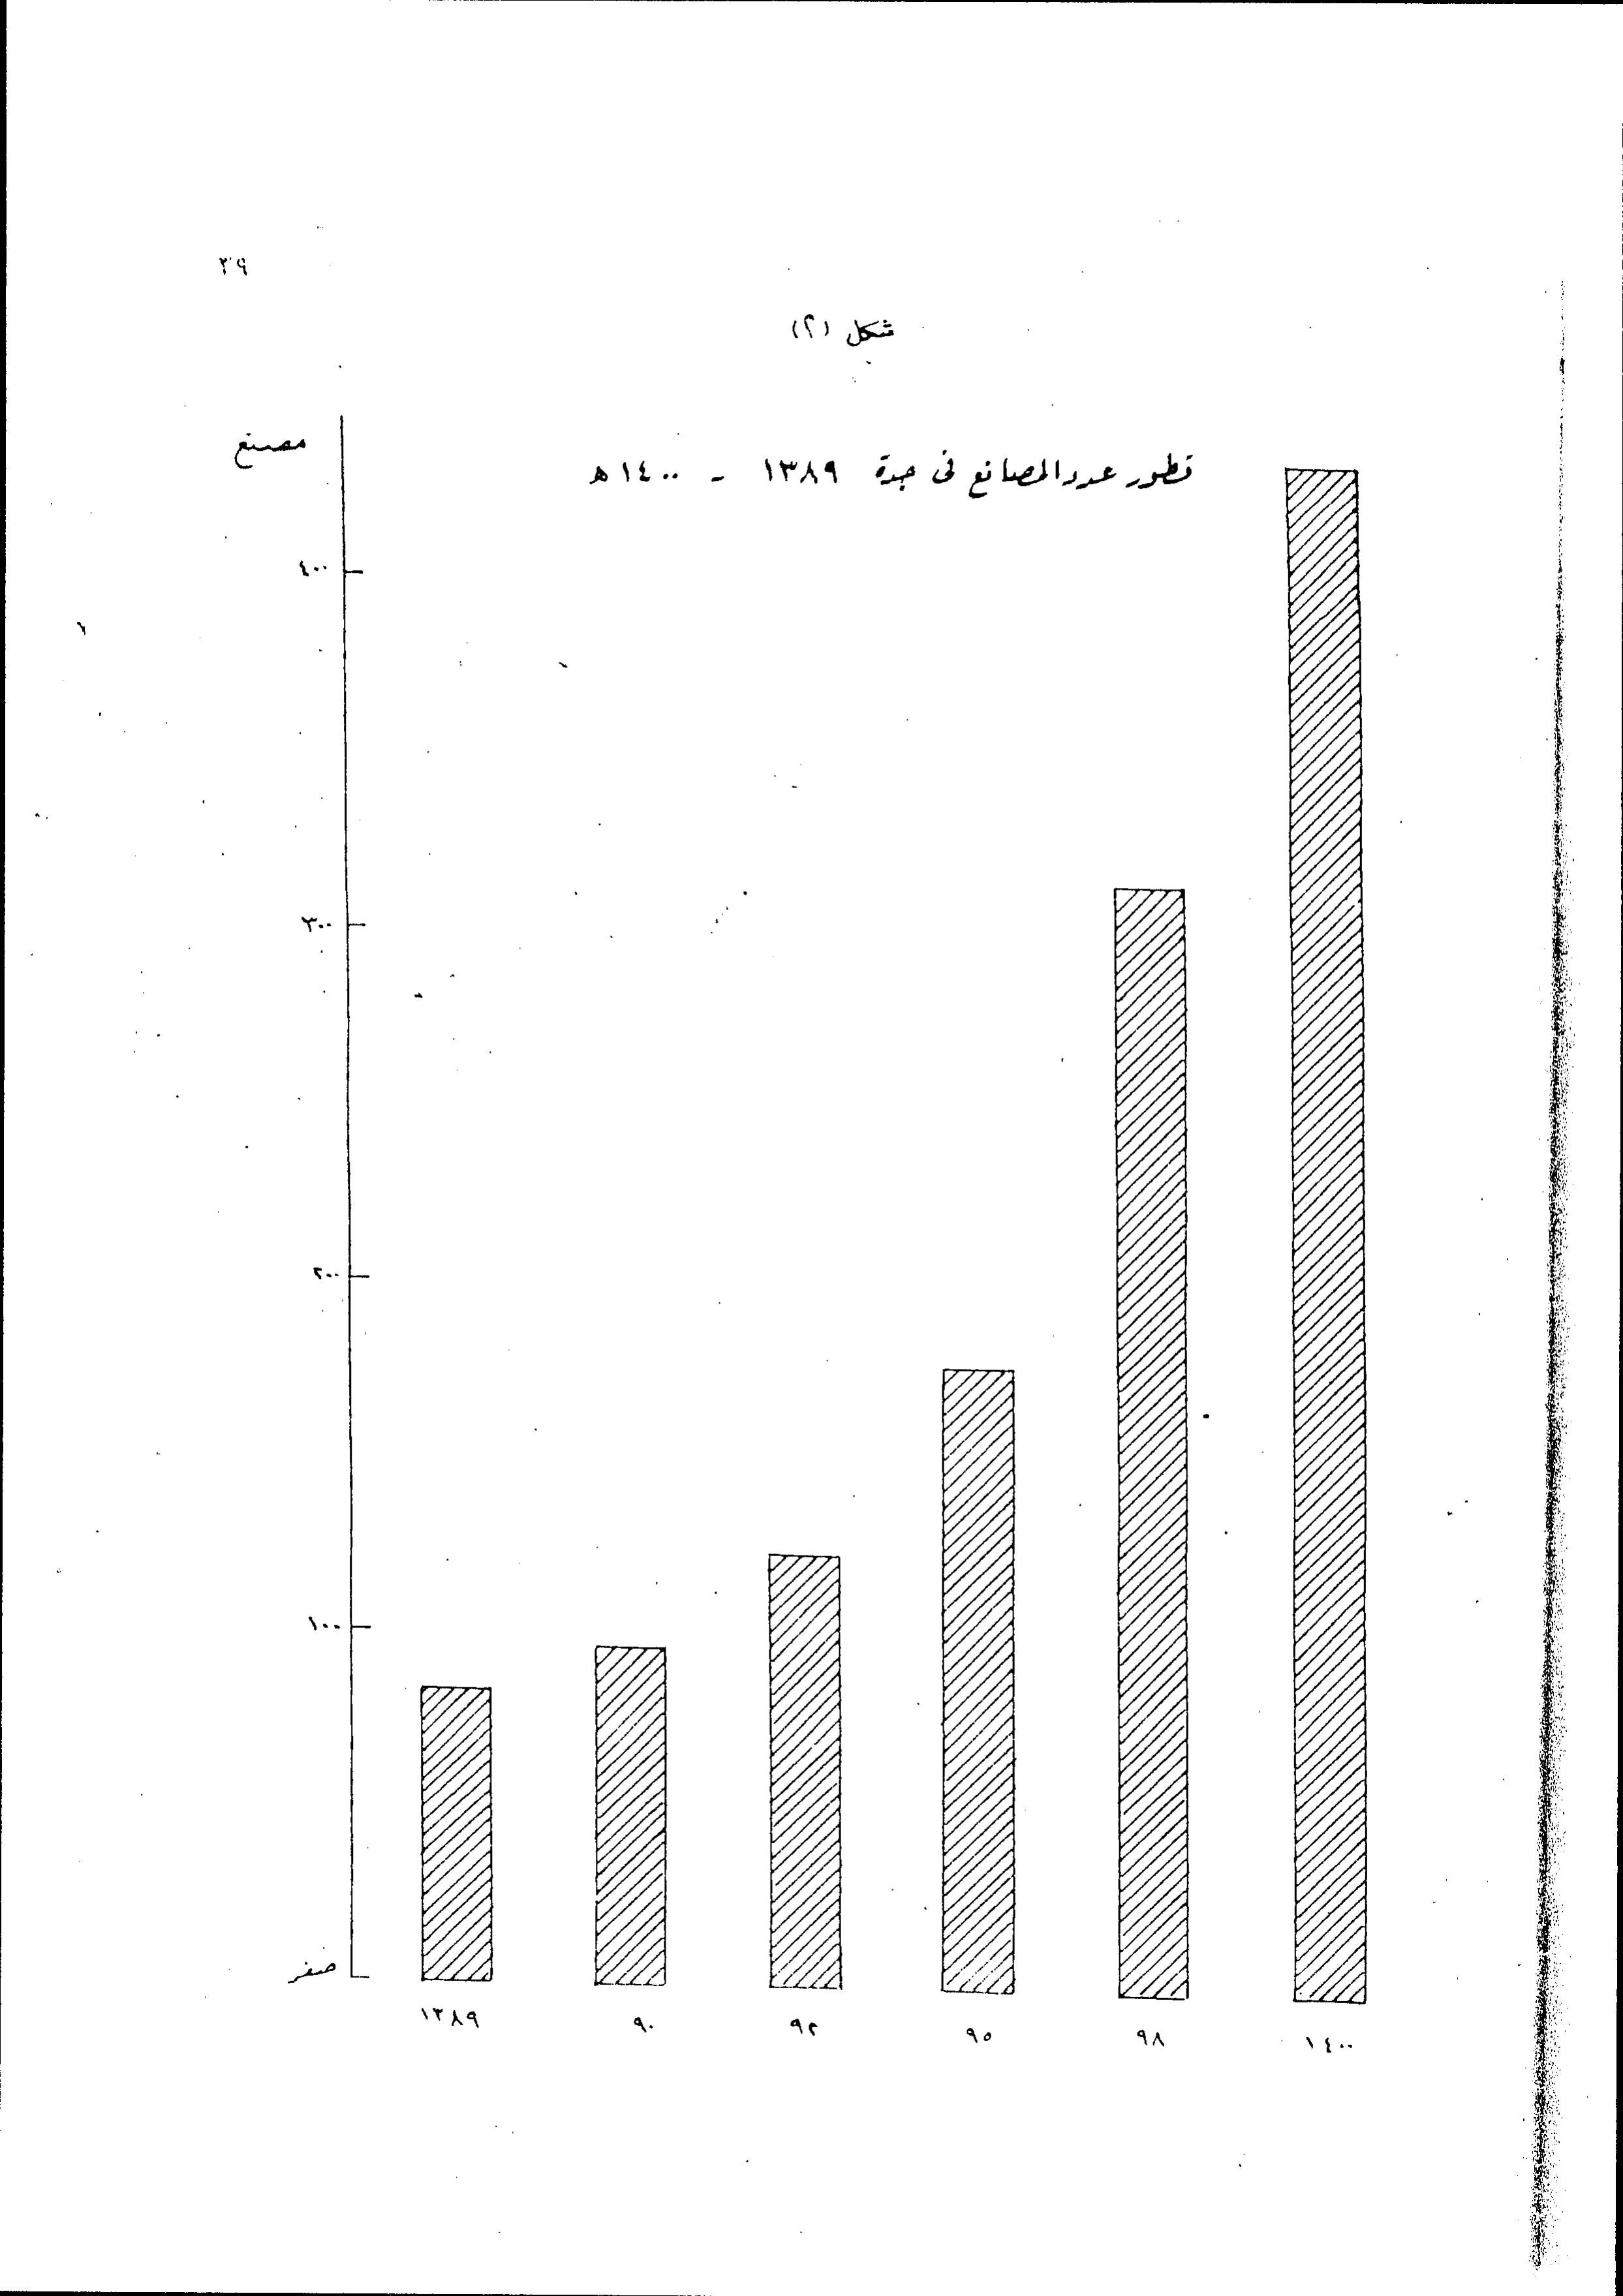 ٣٩
شكل (٢)
تطور عدد المصانع فى جدة ١٣٨٩ - ١٤٠٠ ه
مصنع
٤٠٠
٣٠٠
٢٠٠
١٠٠
صفر
١٣٨٩ ٩٠ ٩٢ ٩٥ ٩٨ ١٤٠٠